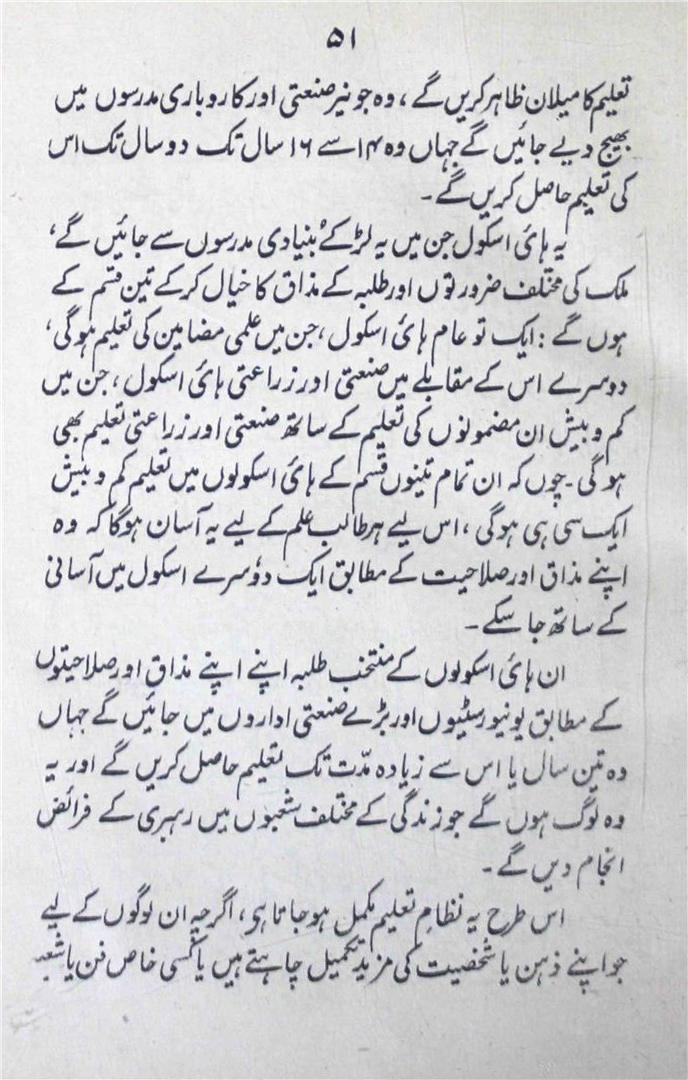 ۵۱
تعلیم کا میلان ظاہر کریں گے، وہ جونیر صنعتی اور کاروباری مدرسوں میں
بھیج دیے جائیں گے جہاں وہ ۱۴ سے ۱۶ سال تک دو سال تک اس
کی تعلیم حاصل کریں گے۔
یہ ہائی اسکول جن میں یہ لڑکے بُنیادی مدرسوں سے جائیں گے،
ملک کی مختلف ضرورتوں اور طلبہ کے مذاق کا خیال کرکے تین قسم کے
ہوں گے: ایک تو عام ہائی اسکول، جن میں علمی مضامین کی تعلیم ہوگی،
دوسرے اس کے مقابلے میں صنعتی اور زراعتی ہائی اسکول، جن میں
کم و بیش ان مضمونوں کی تعلیم کے ساتھ صنعتی اور زراعتی تعلیم بھی
ہوگی۔ چوں کہ ان تمام تینوں قسم کے ہائی اسکولوں میں تعلیم کم و بیش
ایک سی ہی ہوگی، اس لیے ہر طالب علم کے لیے یہ آسان ہوگا کہ وہ
اپنے مذاق اور صلاحیت کے مطابق ایک دوُسرے اسکول میں آسانی
کے ساتھ جا سکے۔
ان ہائی اسکولوں کے منتخب طلبہ اپنے اپنے مذاق اور صلاحیتوں
کے مطابق یونیورسٹیوں اور بڑے صنعتی اداروں میں جائیں گے جہاں
وہ تین سال یا اس سے زیادہ مدّت تک تعلیم حاصل کریں گے اور یہ
وہ لوگ ہوں گے جو زندگی کے مختلف شعبوں میں رہبری کے فرائض
انجام دیں گے۔
اس طرح یہ نظامِ تعلیم مکمل ہو جاتا ہی، اگرچہ ان لوگوں کے لیے
جو اپنے ذہن یا شخصیت کی مزید تکمیل چاہتے ہیں یا کسی خاص فن یا شعبہ